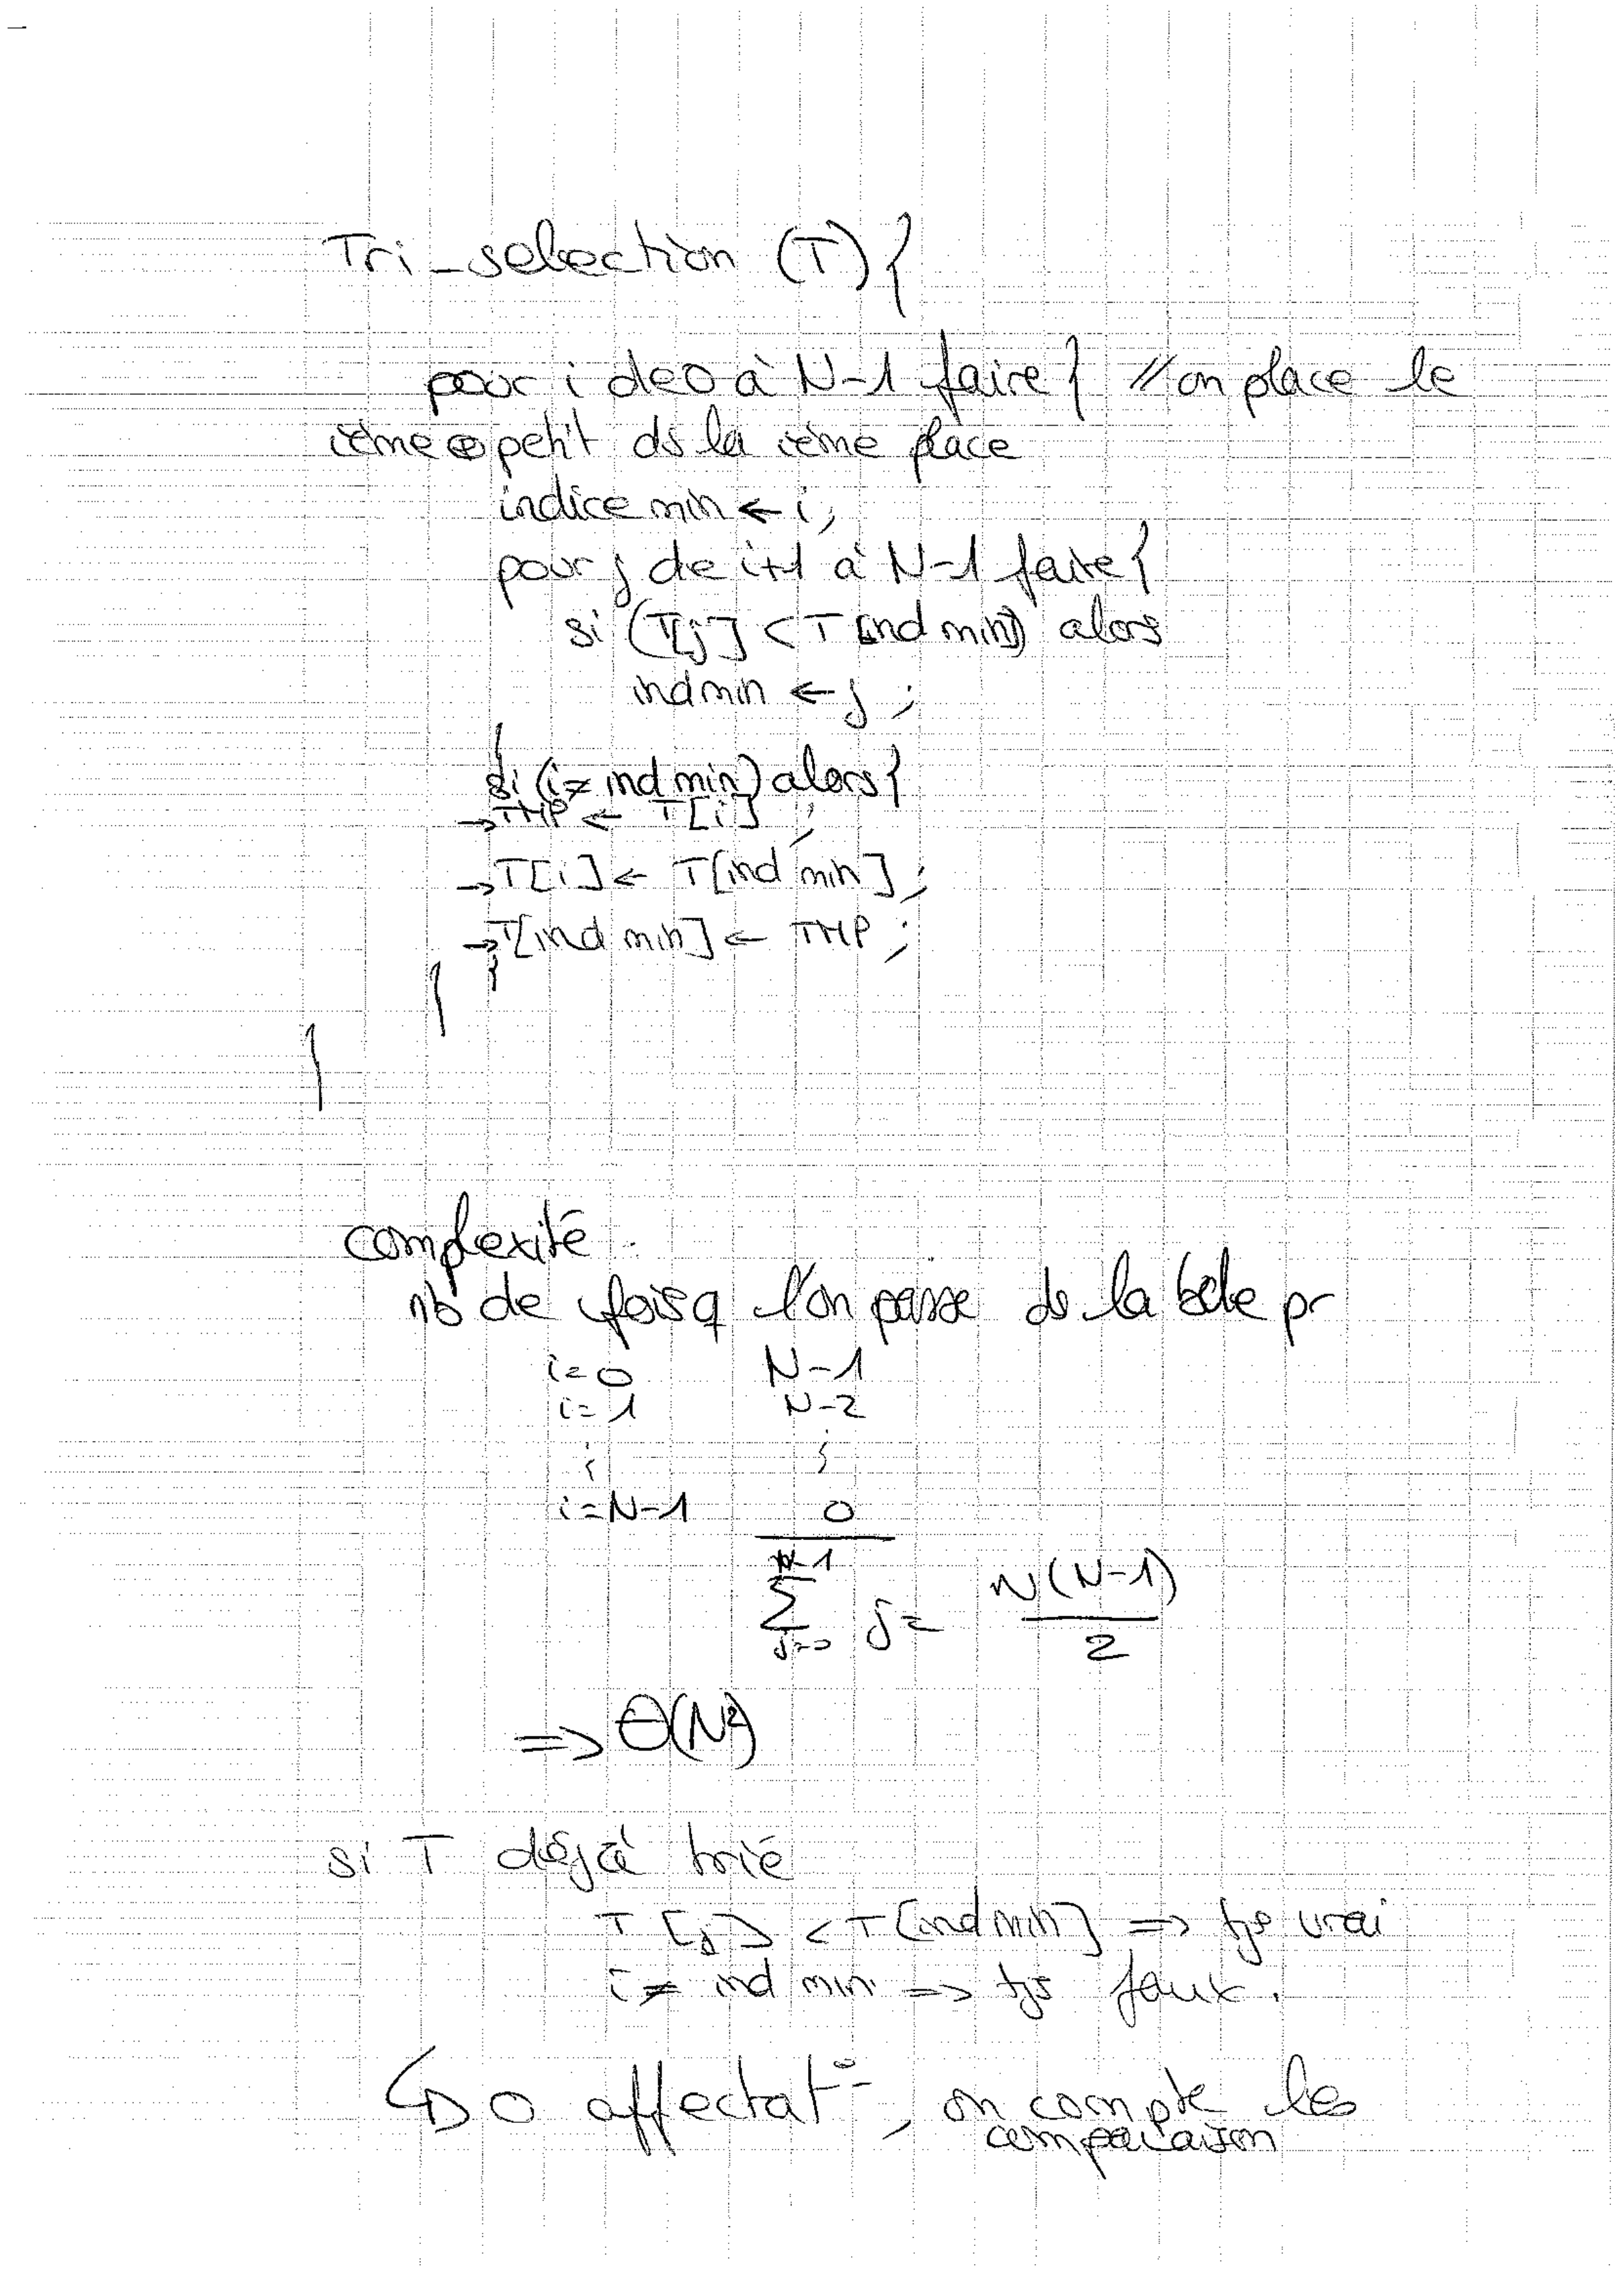 Tri_selection (T) {
pour i de 0 à N-1 faire { // on place le
ième ⊕ petit ds la ième place
indice min ← i ;
pour j de i+1 à N-1 faire {
si (T[j] < T[ind min]) alors
indmin ← j ;
}
si (i ≠ ind min) alors {
→ TMP ← T[i] ;
→ T[i] ← T[ind min] ;
→ T[ind min] ← TMP ;
}
}
}
complexité :
nb de fois q l'on passe ds la bcle pr
i=0 N-1
i=1 N-2
⋮ ⋮
i=N-1 0
N-1
∑ j = N(N-1)/2
j=0
=> Θ(N²)
si T déjà trié
T[j] < T[ind min] => tjs vrai
i ≠ ind min => tjs faux.
↳ 0 affectat°, on compte les
comparaison